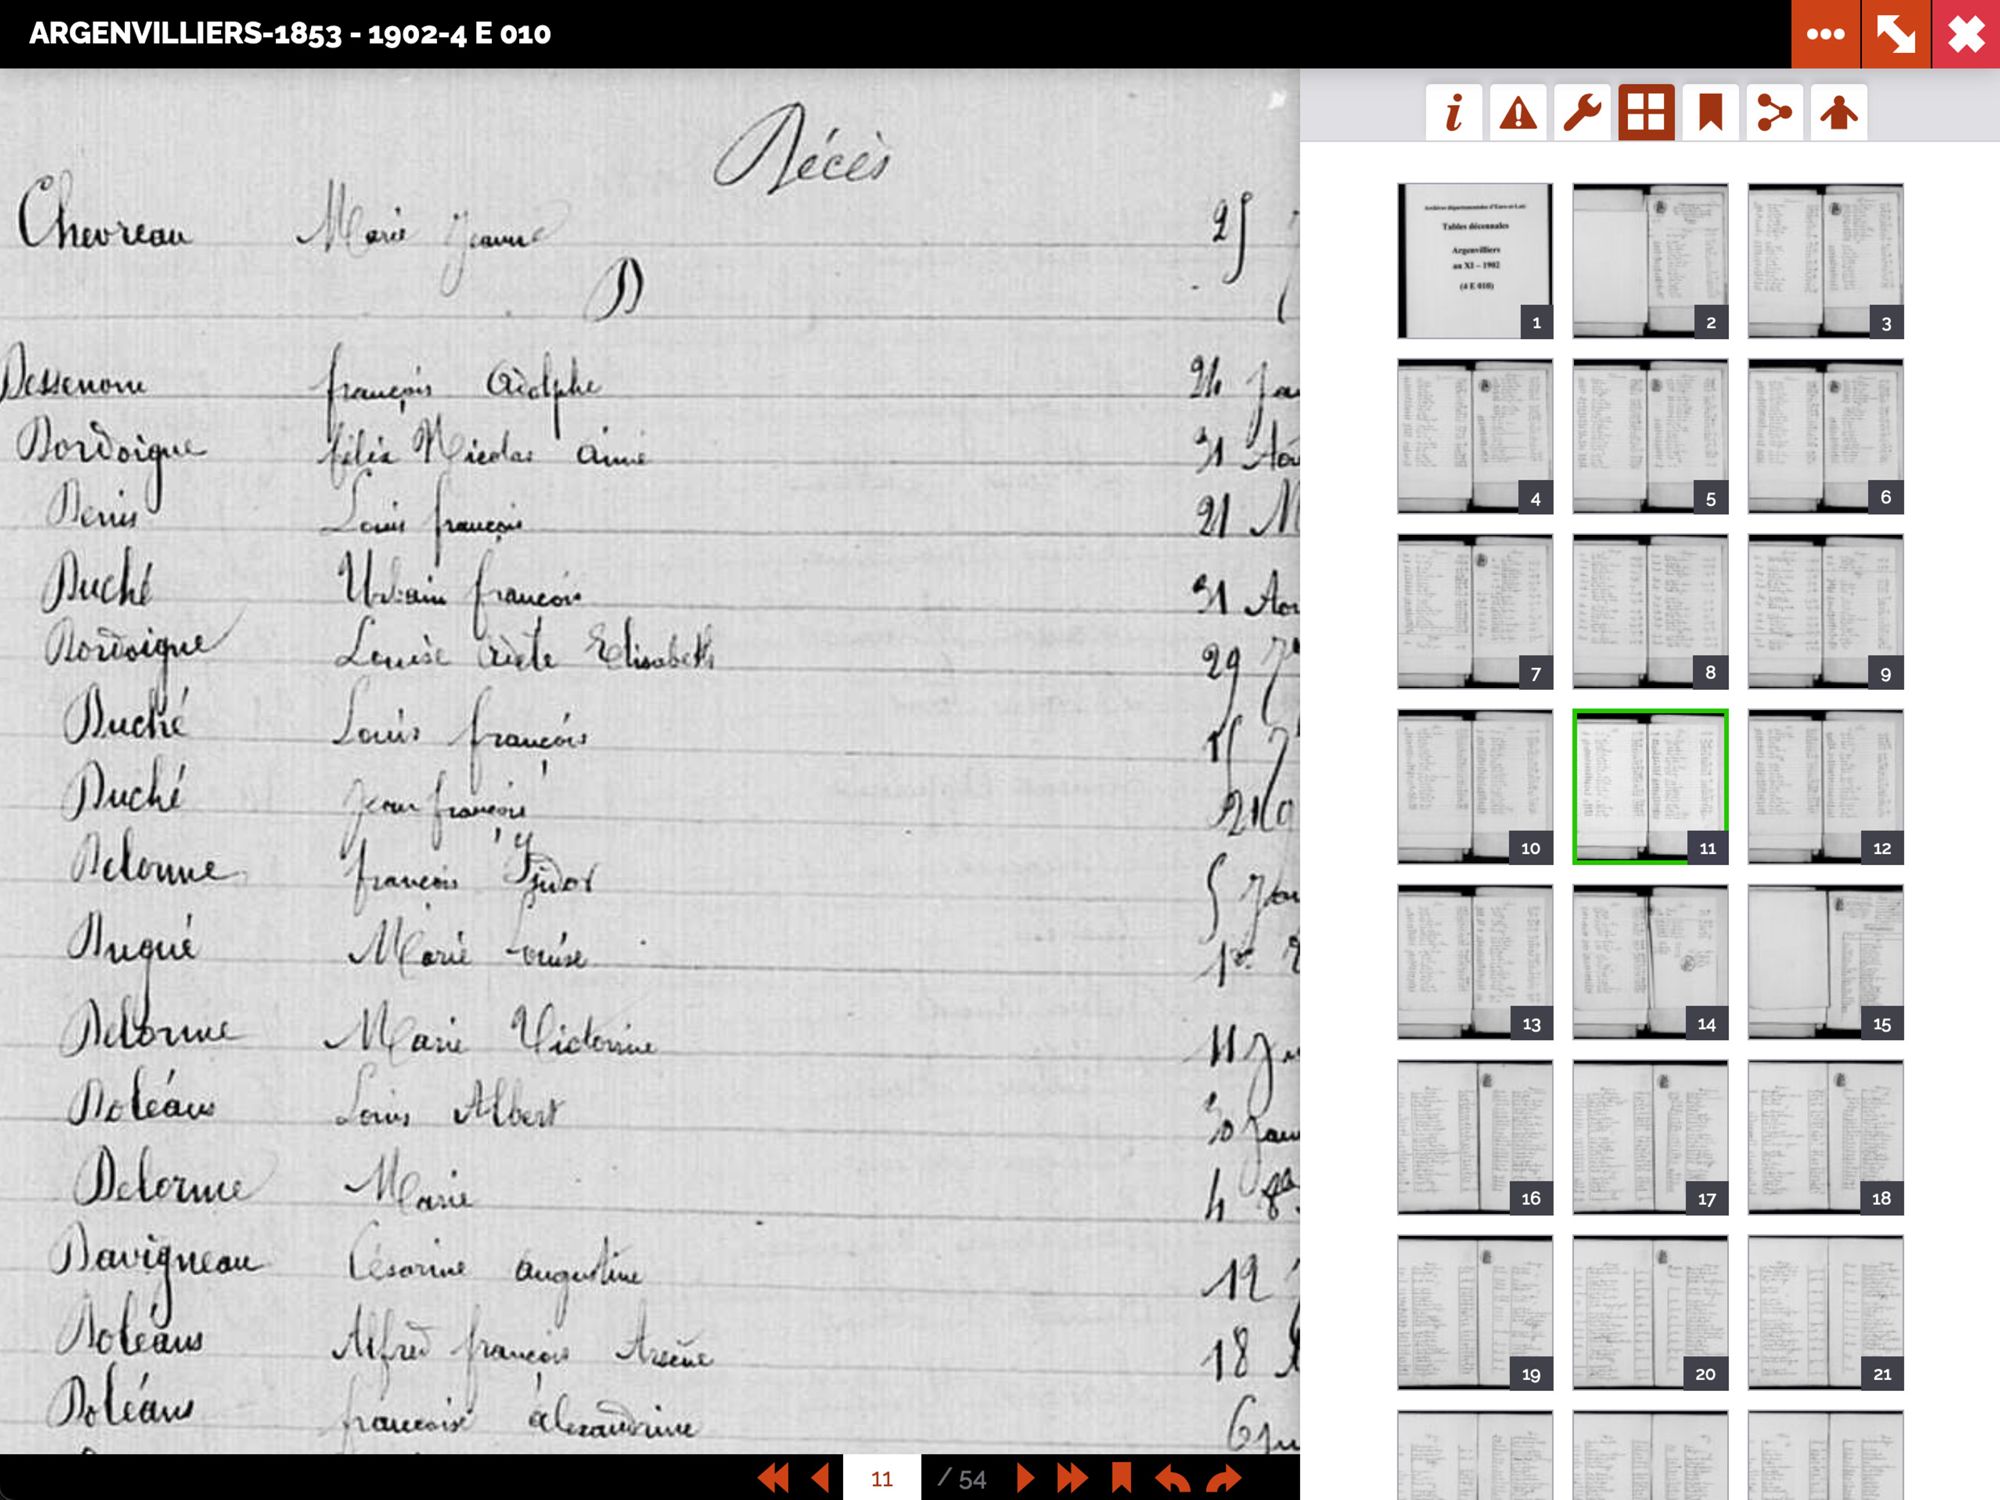 ARGENVILLIERS-1853 - 1902-4 E 010
Décès
Chevreau Marie Jeanne 25
D
Dessenom françois Adolphe 24 Ja
Dordoigne félix Nicolas aimé 31 Aoû
Denis Louis françois 21 M
Duché Urbain françois 31 Aoû
Dordoigne Louise Adèle Elisabeth 29 7
Duché Louis françois 15 7
Duché Jean françois
Delorme françois Isidor 5
Dugué Marie Louise 1er
Delorme Marie Victorine 11
Doléans Louis Albert 30 Janv
Delorme Marie 4 8
Davigneau Césarine augustine 12
Doléans Alfred françois Arsène 18
Doléans françoise alexandrine 6
11 / 54
Archives départementales d'Eure-et-Loir
Tables décennales
Argenvilliers
an XI – 1902
(4 E 010)
1
2
3
4
5
6
7
8
9
10
11
12
13
14
15
16
17
18
19
20
21